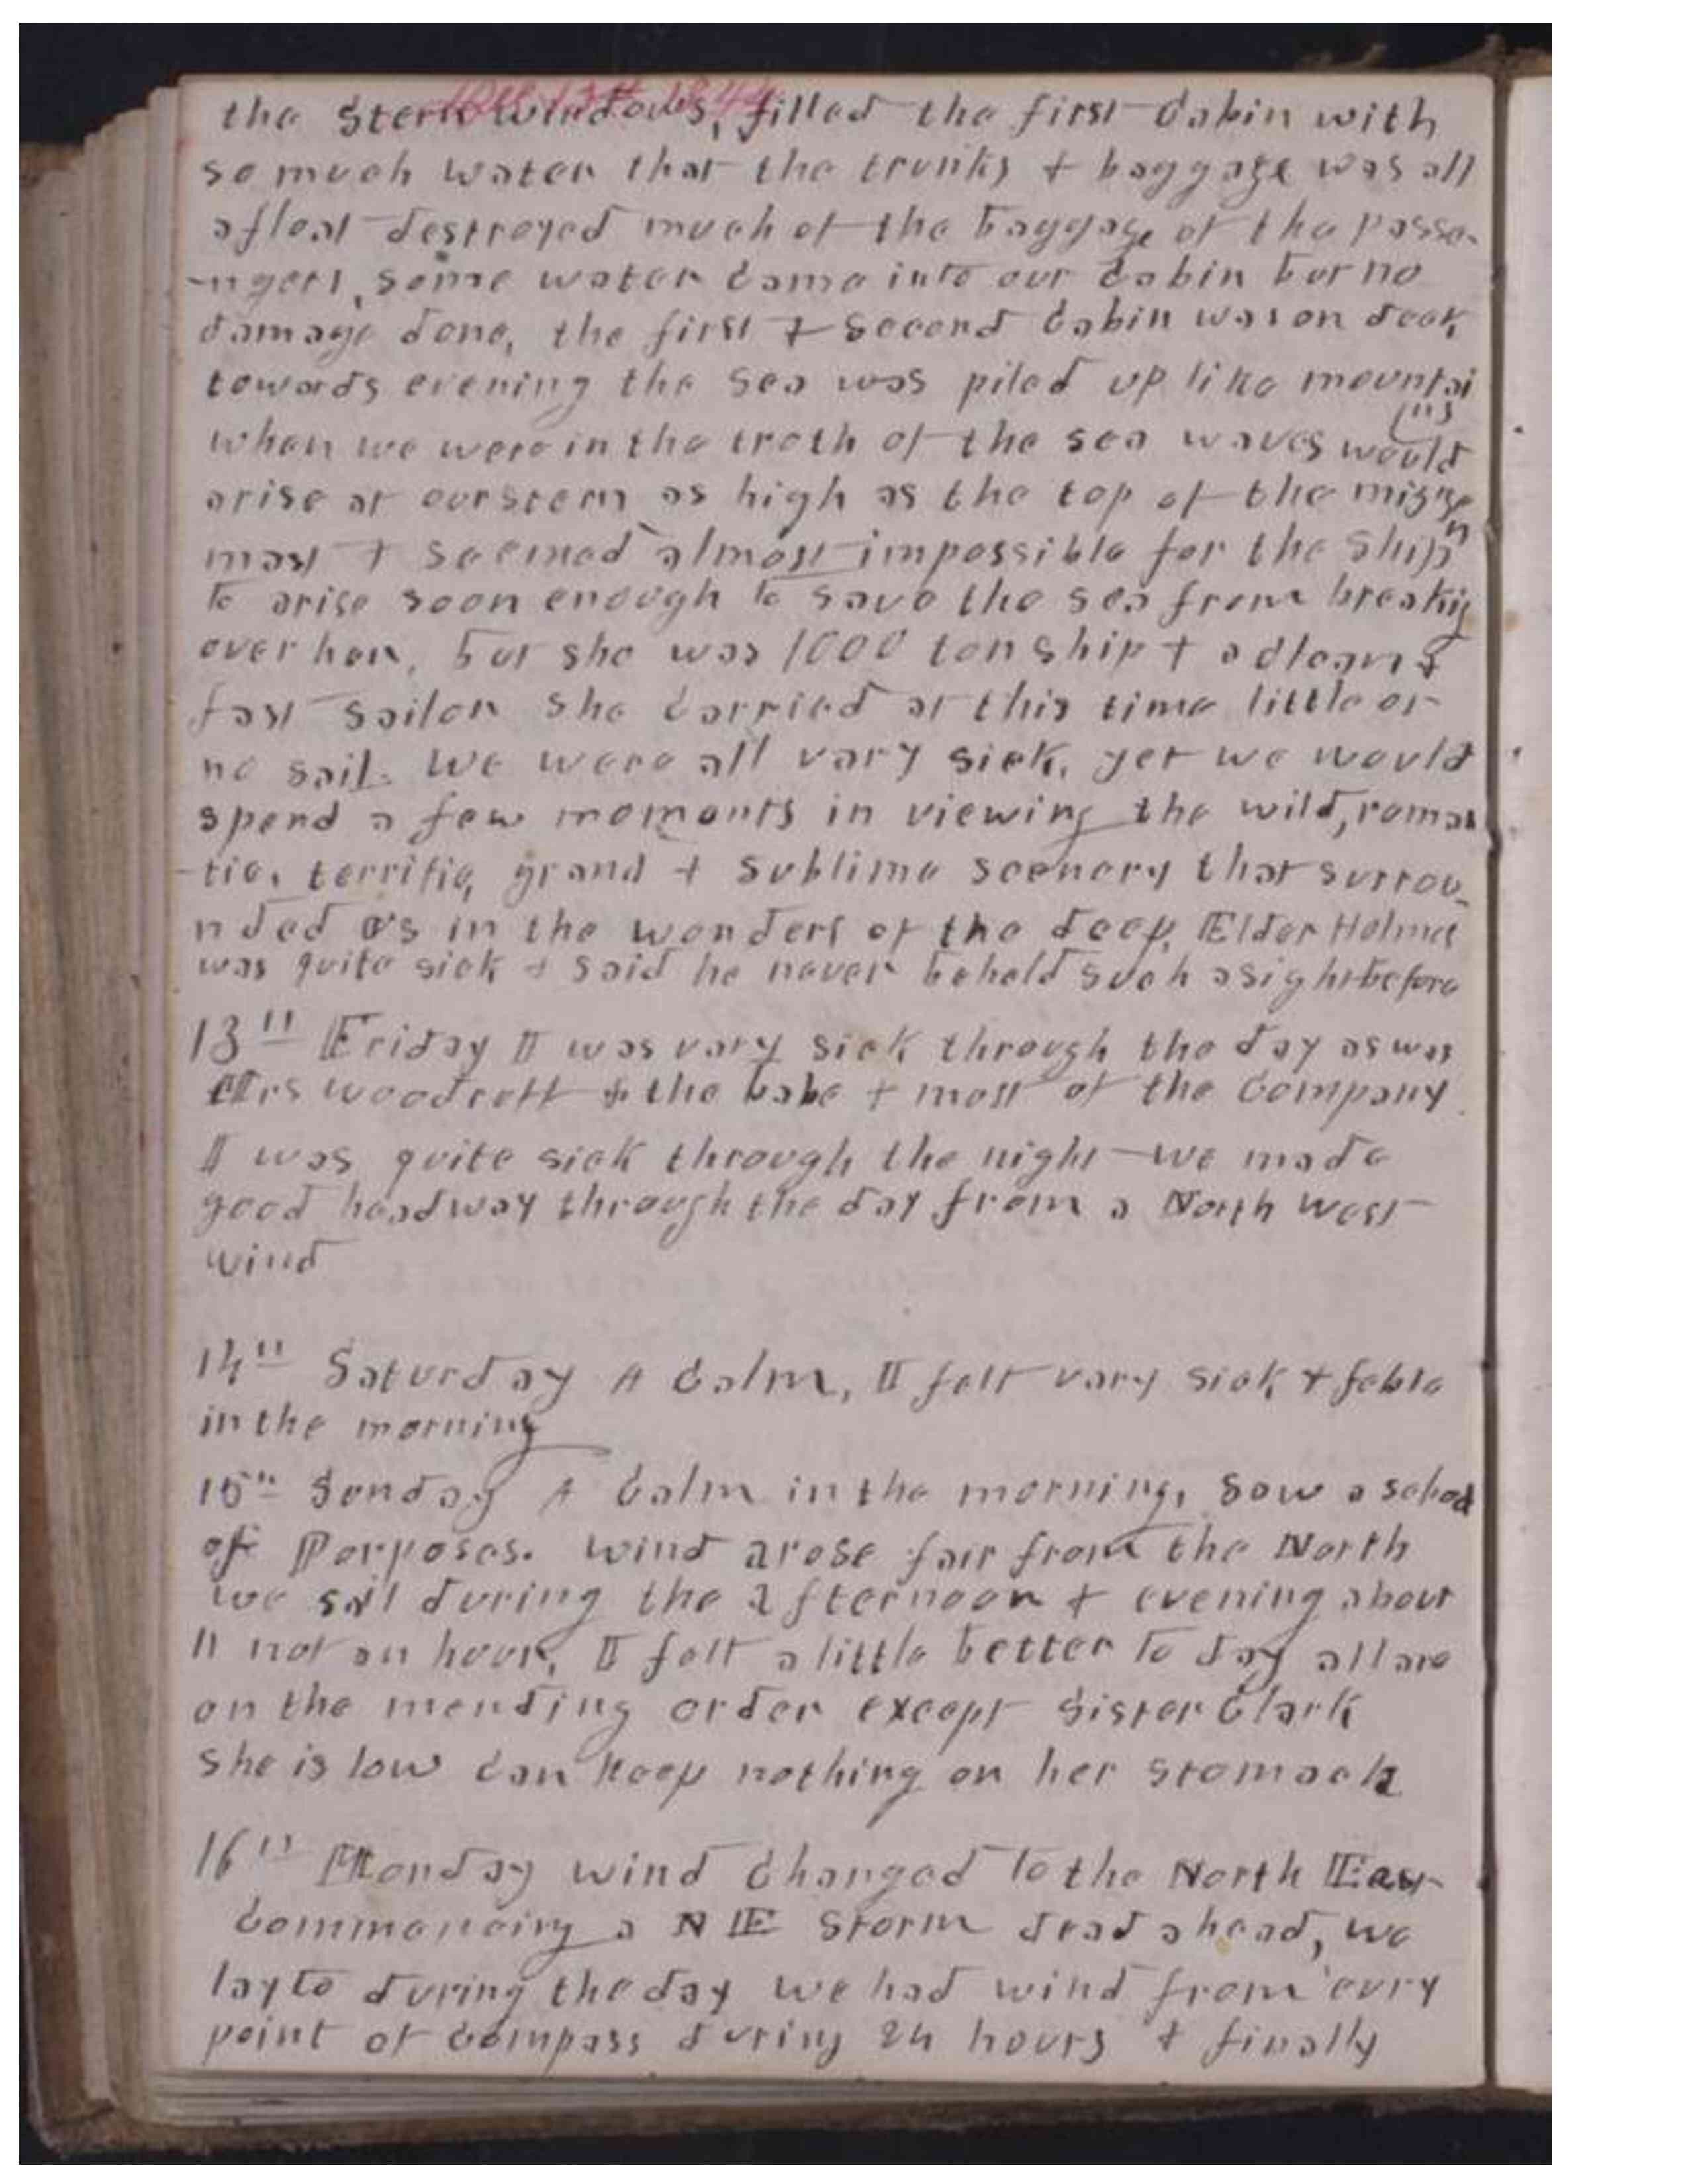 Dec 13th 1844
the Stern windows, filled the first Cabin with
so much water that the trunks & baggage was all
afloat destroyed much of the baggage of the passe-
-ngers, some water came into our Cabin but no
damage done, the first & second Cabin was on deck
towards evening the sea was piled up like mountai
ns
when we were in the troth of the sea waves would
arise at our stern as high as the top of the mizze
n
mast & seemed almost impossible for the ship
to arise soon enough to save the sea from breakig
over her, but she was 1000 ton ship & a clean &
fast sailor she carried at this time little or
no sail. We were all vary sick, yet we would
spend a few moments in viewing the wild, roman
-tic, terrific, grand & sublime scenery that surrou-
nded us in the wonders of the deep, Elder Holmes
was quite sick & said he never beheld such a sight before
13th Friday I was vary sick through the day as was
Mrs Woodruff & the babe & most of the Company
I was quite sick through the night we made
good headway through the day from a North West
wind
14th Saturday A Calm, I felt vary sick & feble
in the morning
15th Sunday A Calm in the morning, saw a school
of Porposes. wind arose fair from the North
we sail during the afternoon & evening about
11 not an hour, I felt a little better to day all are
on the mending order except Sister Clark
she is low can keep nothing on her stomack
16th Monday wind Changed to the North East
Commencing a N E storm dead ahead, we
lay to during the day we had wind from evry
point of Compass during 24 hours & finally